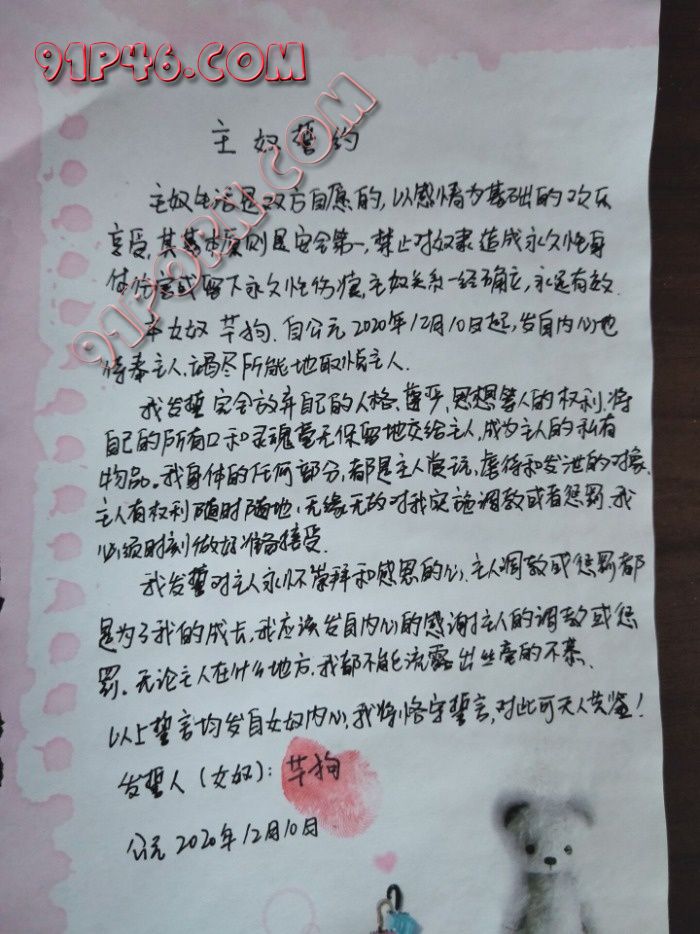 91P46.COM
91PORN.COM
主奴誓约
主奴生活是双方自愿的,以感情为基础的欢乐
享受,其基本原则是安全第一,禁止对奴隶造成永久性身
体伤害或留下永久性伤痕,主奴关系一经确立,永远有效.
本女奴 苹狗.自公元2020年12月10日起,发自内心地
侍奉主人,竭尽所能地取悦主人.
我发誓完全放弃自己的人格、尊严、思想等人的权利,将
自己的所有口和灵魂毫无保留地交给主人,成为主人的私有
物品。我身体的任何部分,都是主人赏玩,虐待和发泄的对象.
主人有权利随时随地,无缘无故对我实施调教或者惩罚.我
必须时刻做好准备接受.
我发誓对主人永怀崇拜和感恩的心,主人调教或惩罚都
是为了我的成长,我应该发自内心的感谢主人的调教或惩
罚。无论主人在什么地方,我都不能流露出丝毫的不恭.
以上誓言均发自女奴内心,我将恪守誓言,对此可天人共鉴!
发誓人(女奴):苹狗
公元2020年12月10日